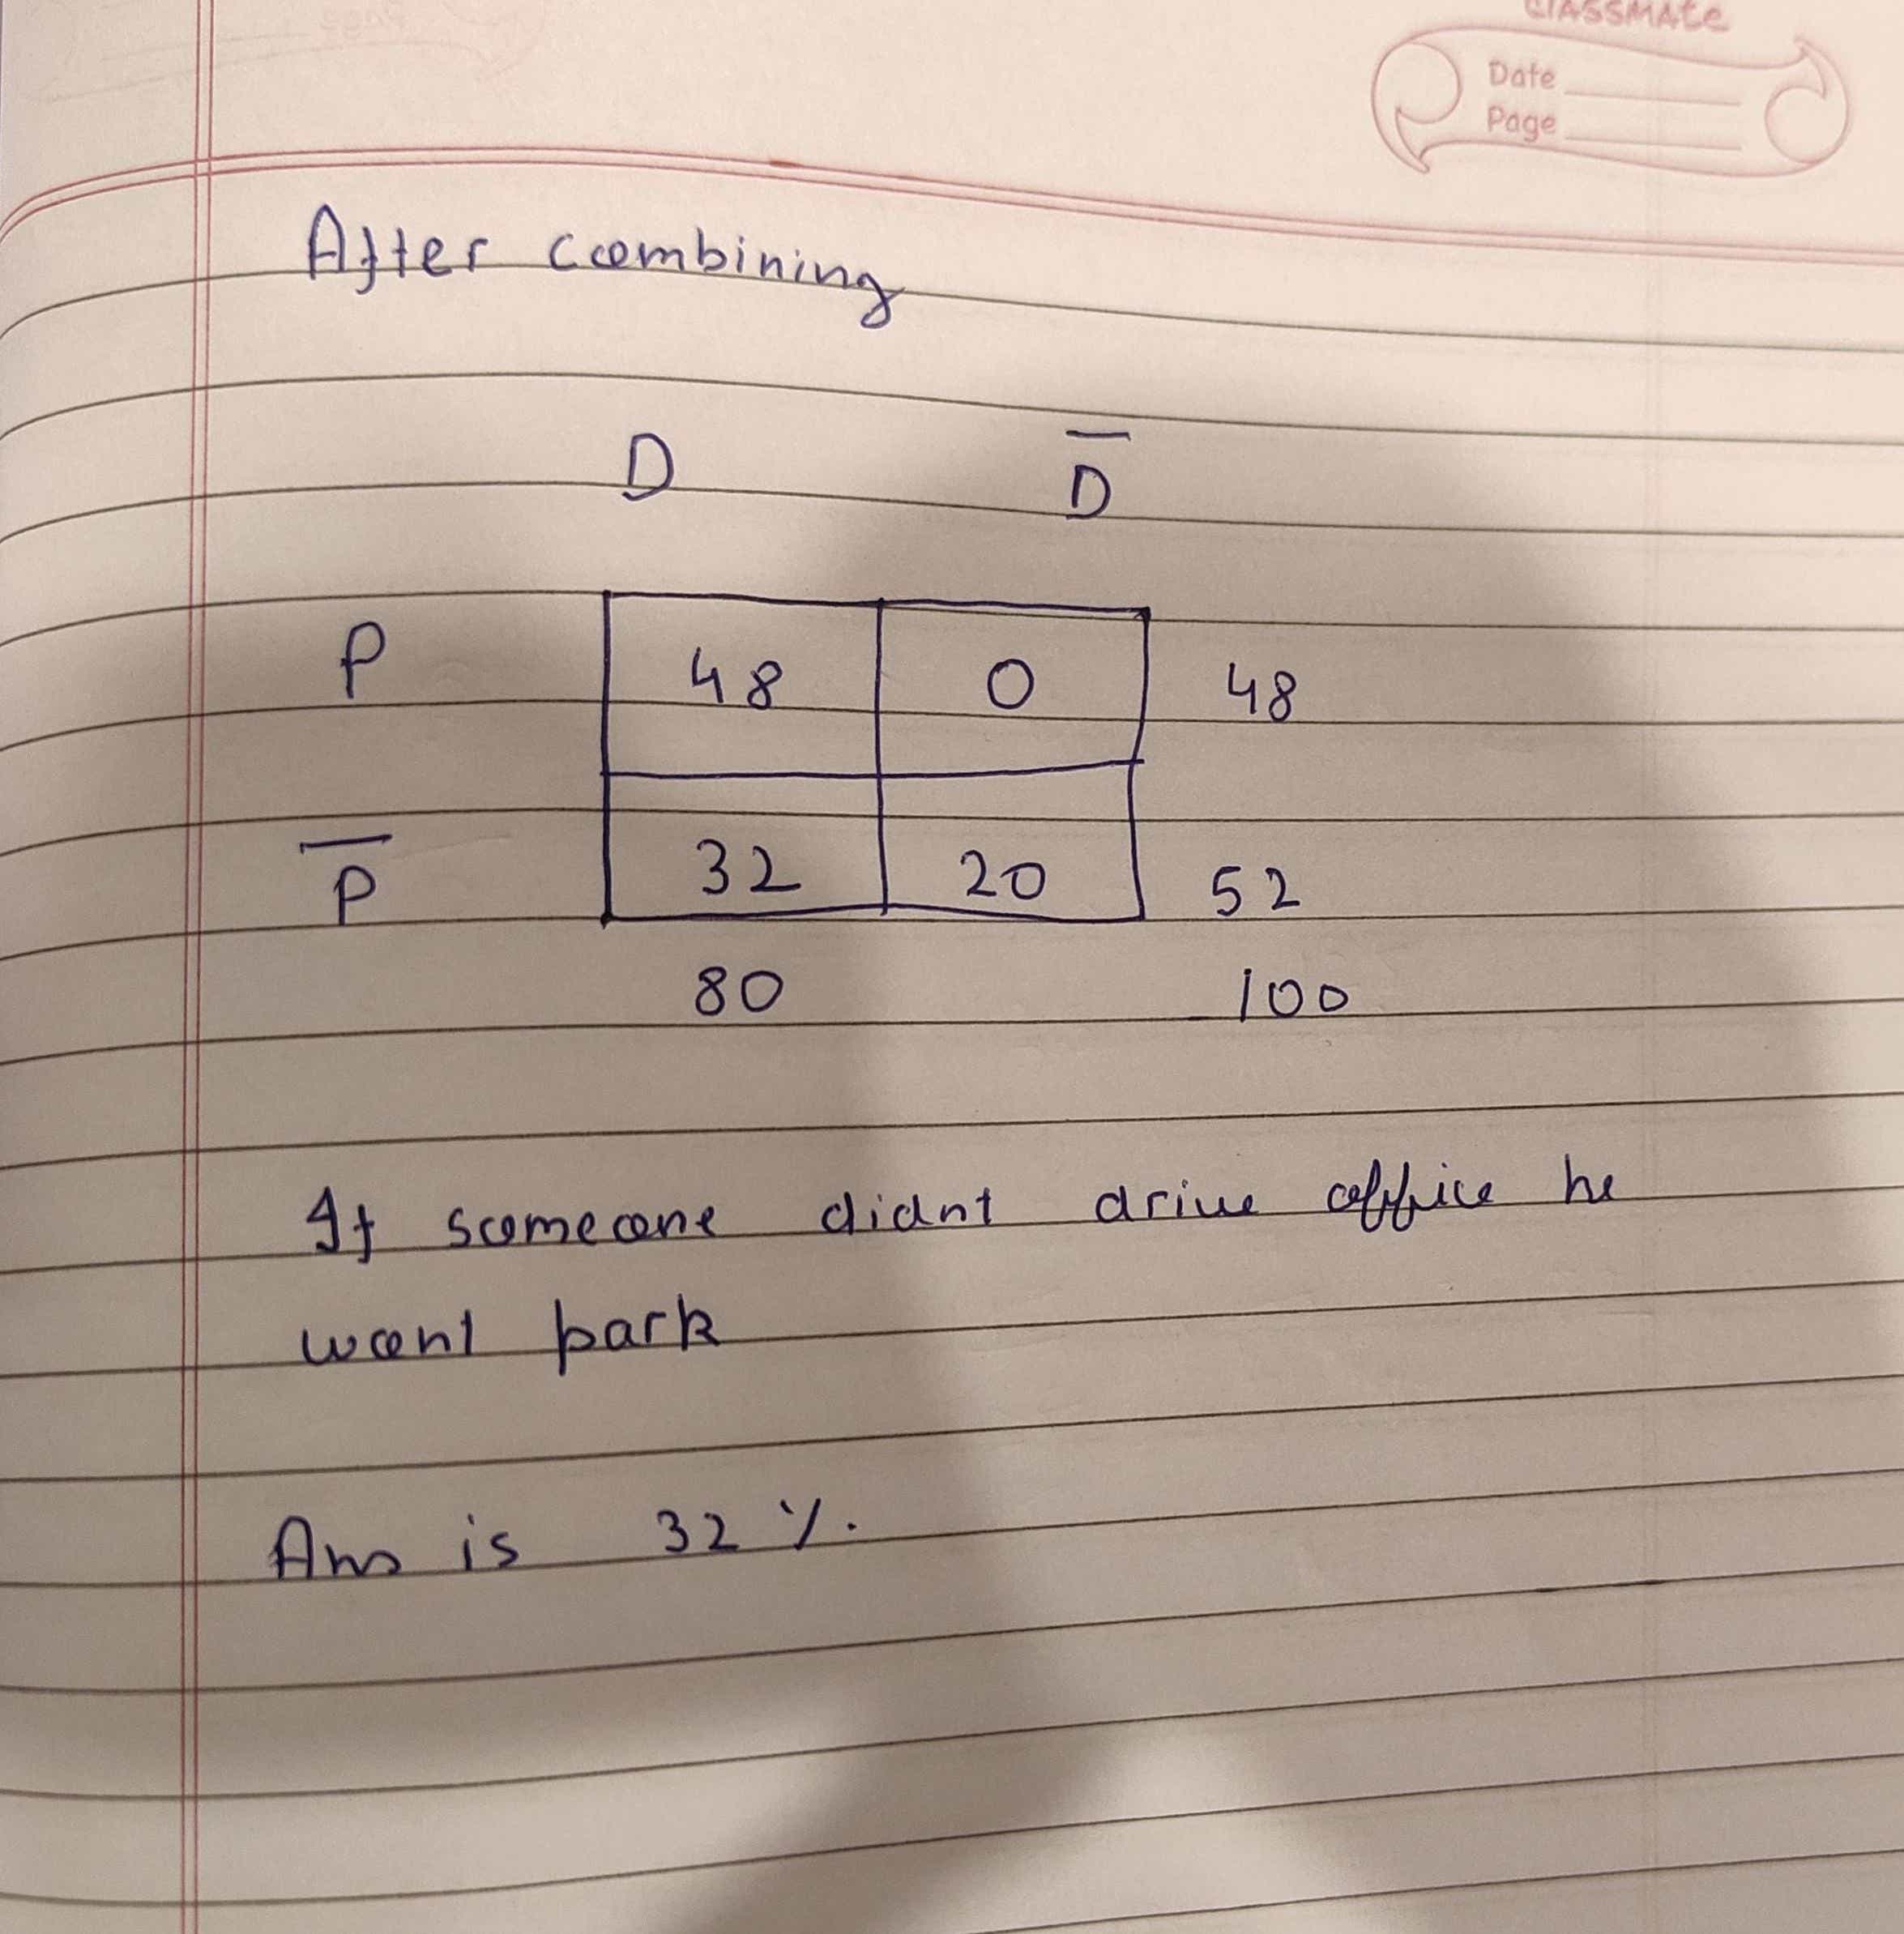 classmate
Date
Page
After combining
D D̅
P 48 0 48
P̅ 32 20 52
80 100
If someone didnt drive office he
wont park
Ans is 32 %.